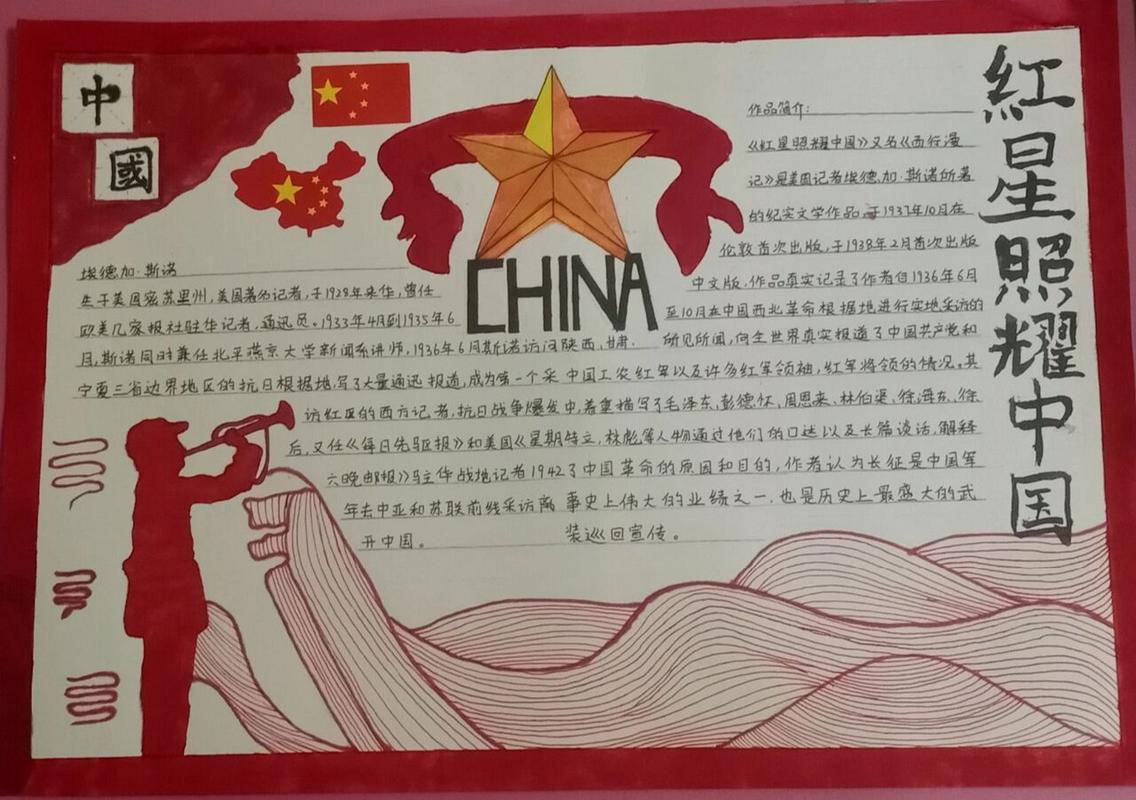 中
國
红星照耀中国
CHINA
埃德加·斯诺
生于美国密苏里州,美国著名记者,于1928年来华,曾任
欧美几家报社驻华记者,通讯员。1933年4月到1935年6
月,斯诺同时兼任北平燕京大学新闻系讲师,1936年6月斯诺访问陕西,甘肃.
宁夏三省边界地区的抗日根据地,写了大量通讯报道,成为第一个采
访红区的西方记者,抗日战争爆发
后,又任《每日先驱报》和美国《星期
六晚邮报》驻华战地记者1942
年去中亚和苏联前线采访离
开中国。
作品简介:
《红星照耀中国》又名《西行漫
记》是美国记者埃德加·斯诺所著
的纪实文学作品,于1937年10月在
伦敦首次出版,于1938年2月首次出版
中文版,作品真实记录了作者自1936年6月
至10月在中国西北革命根据地进行实地采访的
所见所闻,向全世界真实报道了中国共产党和
中国工农红军以及许多红军领袖,红军将领的情况。其
中,着重描写了毛泽东,彭德怀,周恩来,林伯渠,徐海东,徐
特立,林彪等人物通过他们的口述以及长篇谈话,解释
了中国革命的原因和目的,作者认为长征是中国军
事史上伟大的业绩之一,也是历史上最盛大的武
装巡回宣传。